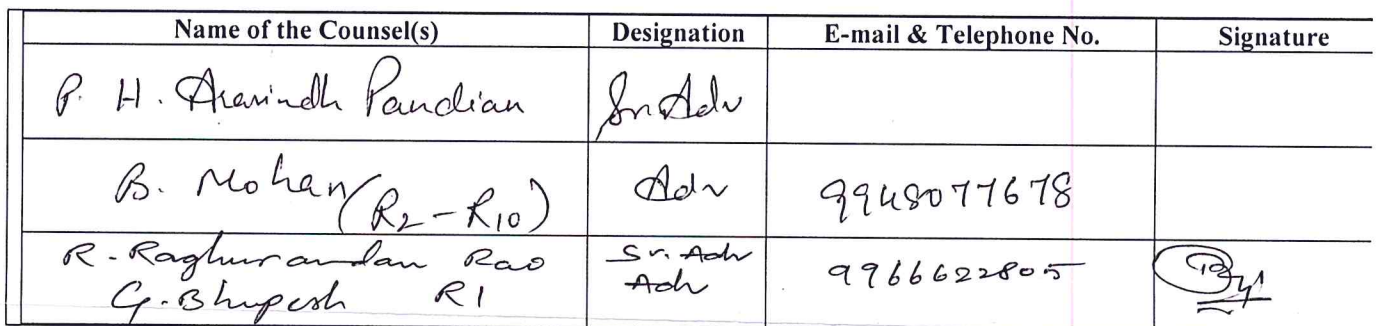 Name of the Counsel(s) Designation E-mail & Telephone No. Signature
P. H. Aravindh Pandian Sr. Adv
B. Mohan (R2-R10) Adv 9948077678
R. Raghunandan Rao Sr. Adv 9966622805
G. Bhupesh R1 Adv